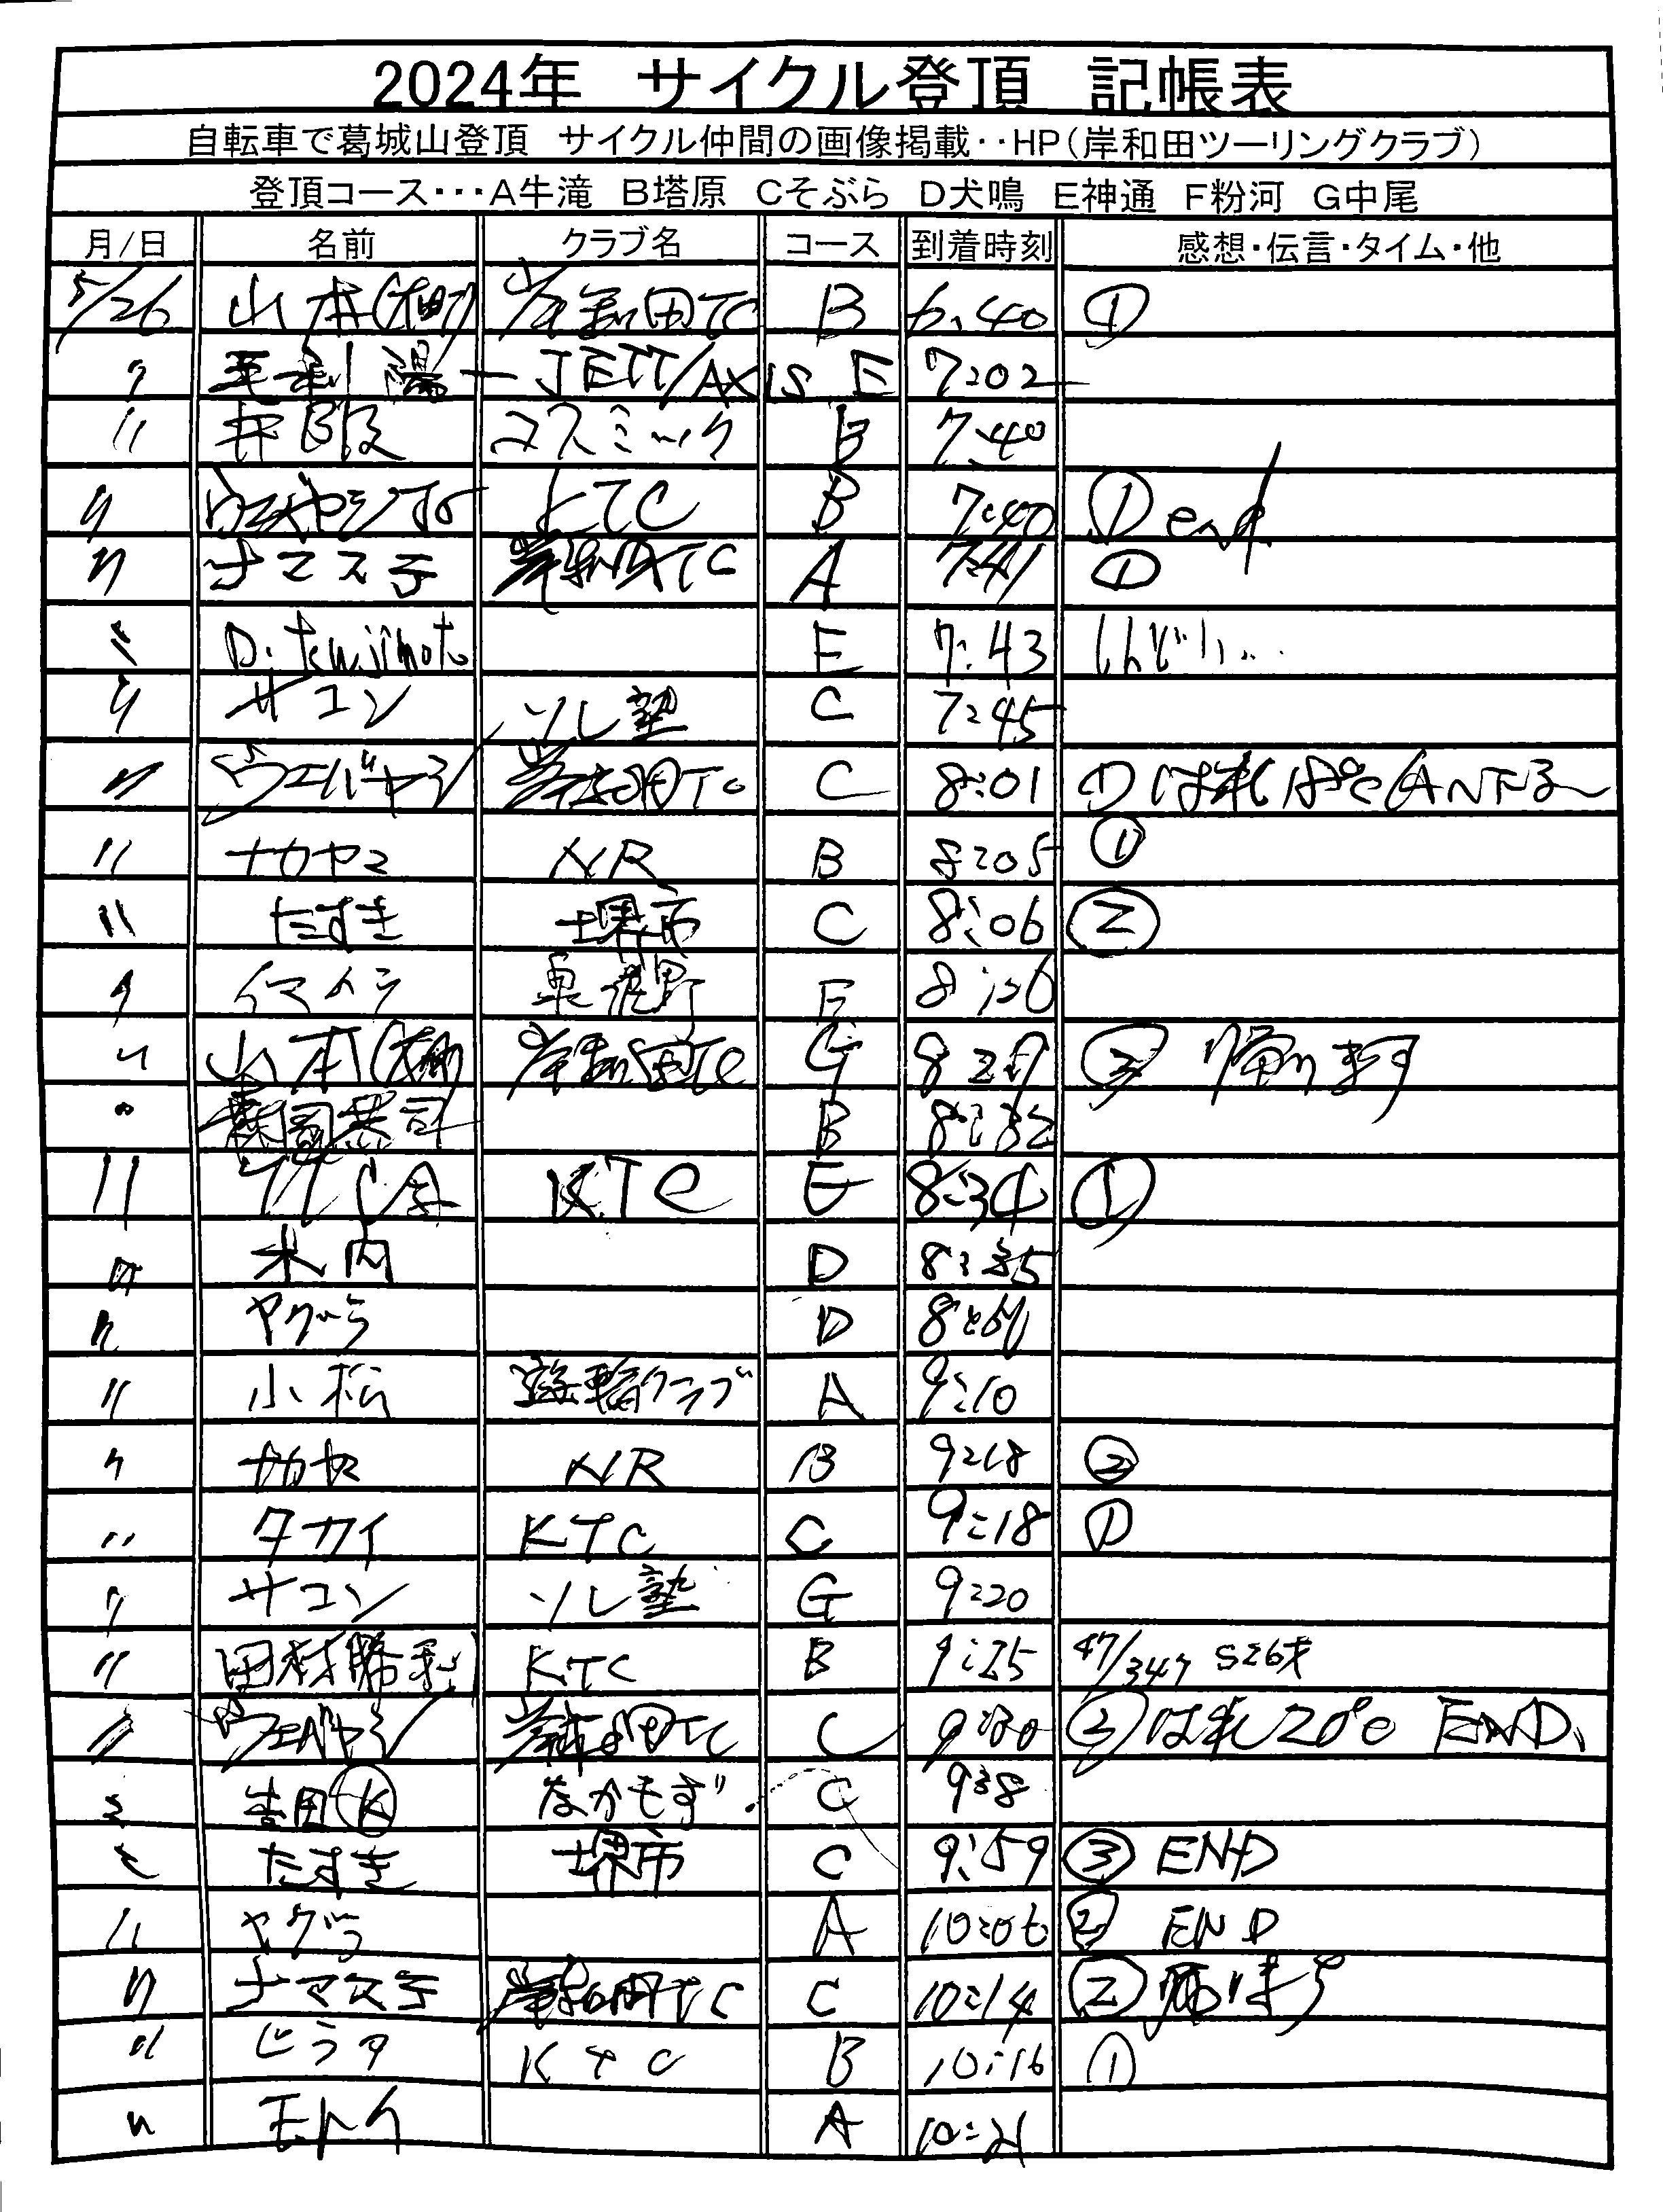 2024年 サイクル登頂 記帳表
自転車で葛城山登頂 サイクル仲間の画像掲載‥HP(岸和田ツーリングクラブ)
登頂コース･･･A牛滝 B塔原 Cそぶら D犬鳴 E神通 F粉河 G中尾
月/日 名前 クラブ名 コース 到着時刻 感想・伝言・タイム・他
5/26 山本 岸和田TC B 6:40 ①
〃 毛利 陽一 JETT/AXIS E 7:02
〃 コスミック B 7:40
〃 KTC B 7:40 ① end
〃 ナマステ 岸和田TC A 7:41 ①
〃 D. E 7:43 しんどい...
〃 サコン ソレ塾 C 7:45
〃 ウエバヤシ 岸和田TC C 8:01 ① はれ
〃 ナカヤマ NR B 8:05 ①
〃 たすき 堺市 C 8:06 ②
〃 E
〃 山本 岸和田TC G ② 帰ります
〃 B 8:32
〃 KTC E 8:34 ①
〃 木内 D 8:35
〃 ヤグラ D
〃 小松 遊輪クラブ A 9:10
〃 ナカヤマ NR B 9:18 ②
〃 タカイ KTC C 9:18 ①
〃 サコン ソレ塾 G 9:20
〃 田村勝利 KTC B 9:25 47/347
〃 ウエバヤシ 岸和田TC C 9:30 ② はれ 20℃ END.
〃 吉田Ⓚ なかもず C 9:38
〃 たすき 堺市 C 9:59 ③ END
〃 ヤグラ A 10:06 ② END
〃 ナマステ 岸和田TC C 10:14 ② 帰ります
〃 ヒラタ KTC B 10:16 ①
〃 モトイ A 10:21